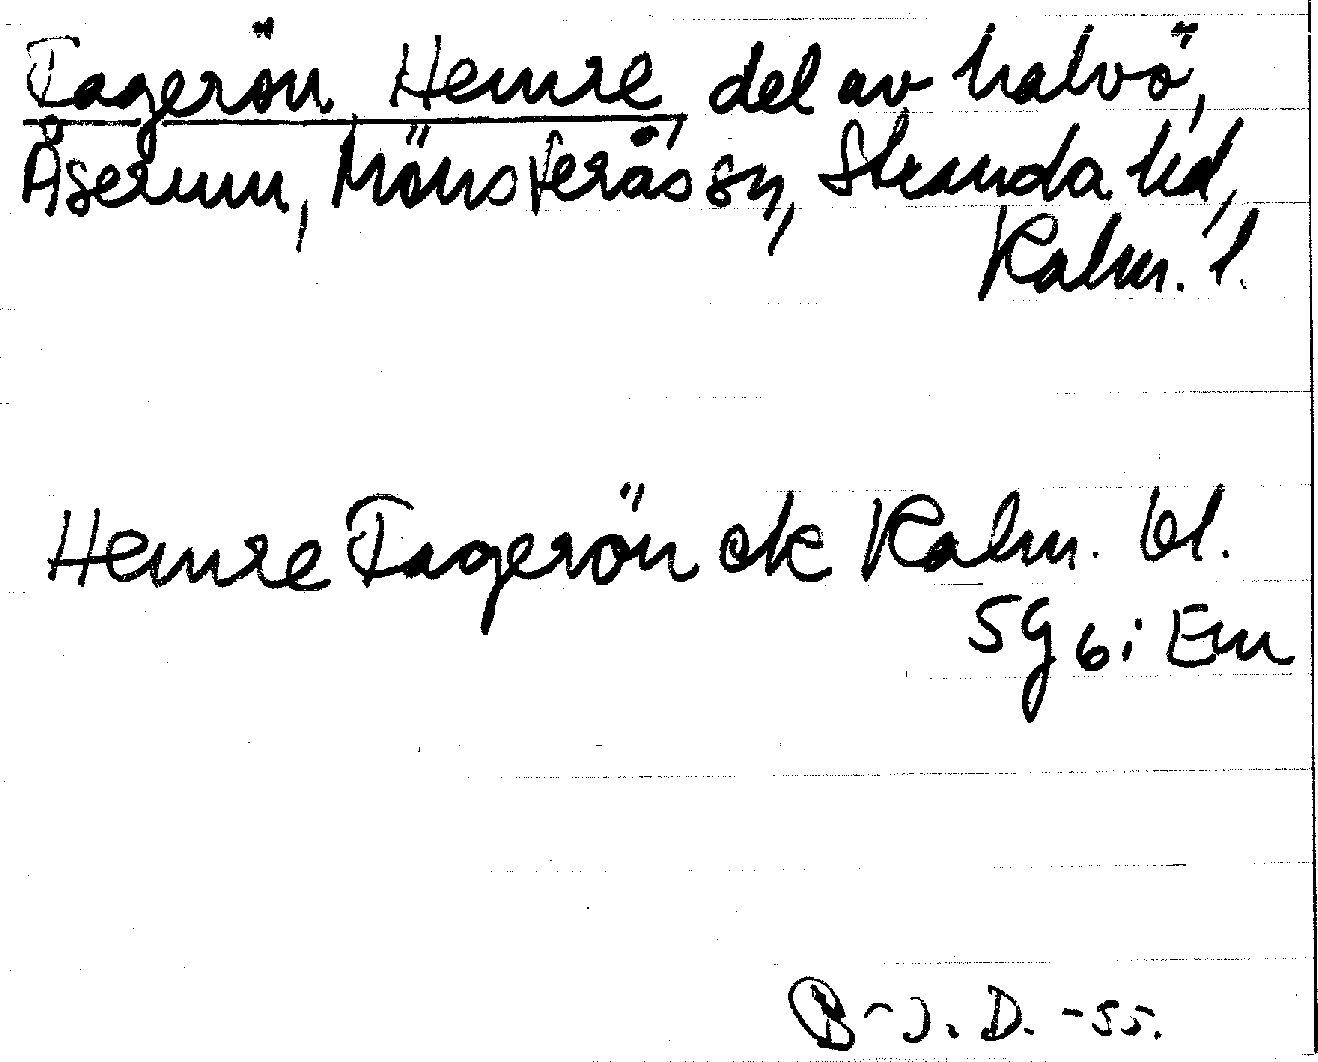 Tagerön, Hemre, del av halvö,
Åserum, Mönsterås sn, Stranda hd,
Kalm. l.
Hemre Tagerön ek Kalm. bl.
5g6i Em
B-J. D. -55.